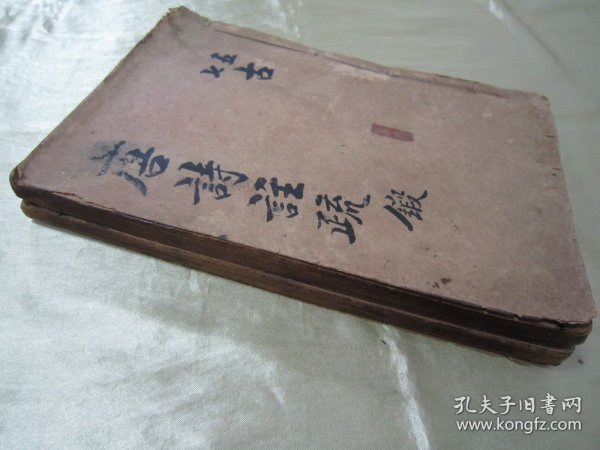 五七古
唐詩註疏
孔夫子旧书网
www.kongfz.com